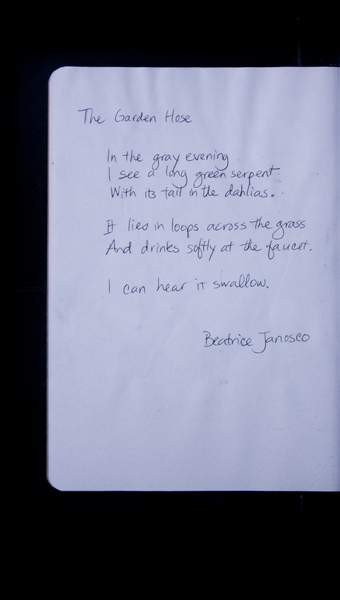 The Garden Hose
In the gray evening
I see a long green serpent
With its tail in the dahlias.
It lies in loops across the grass
And drinks softly at the faucet.
I can hear it swallow.
Beatrice Janosco